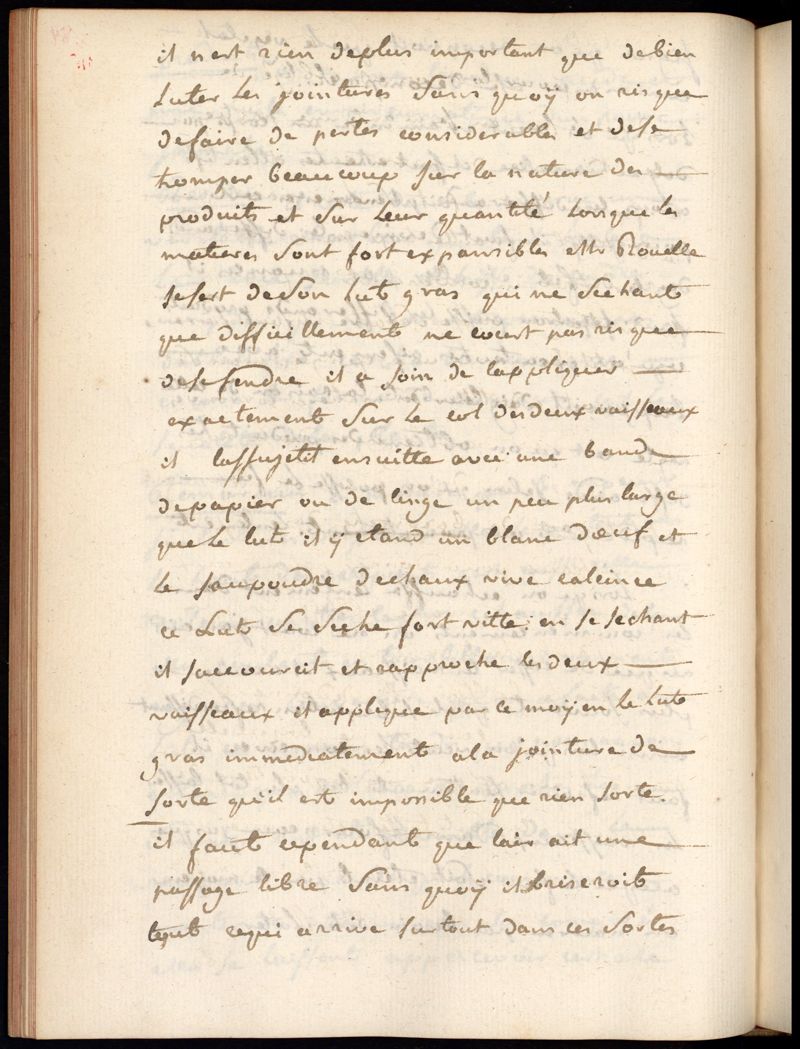 il n'est rien deplus important que debien
Luter Les jointures Sans quoÿ on risque
defaire de pertes considerables et dese
tromper beaucoup sur la nature des
produits et Sur Leur quantité Lorsque les
matieres Sont fort expansibles Mr Rouelle
sesert deson Lut gras qui ne Sechant
que difficillement ne court pas risque
desefendre il a soin de lappliquer
exactement Sur Le col desdeux vaisseaux
il lassujetit ensuitte avec une bande
depapier ou de linge un peu plus large
queLe lut il ÿ etand un blanc d'oeuf et
Le saupoudre dechaux vive calcinee
ce Lut Se Seche fort ville en sesechant
il saccourcit et rapproche lesdeux
vaisseaux et applique par ce moÿen Le Lut
gras immediatement ala jointure de
sorte qu'il est impossible que rien sorte.
il faut cependant que lair ait une
passage libre Sans quoÿ il briseroit
tout cequi arrive surtout dans ces Sortes